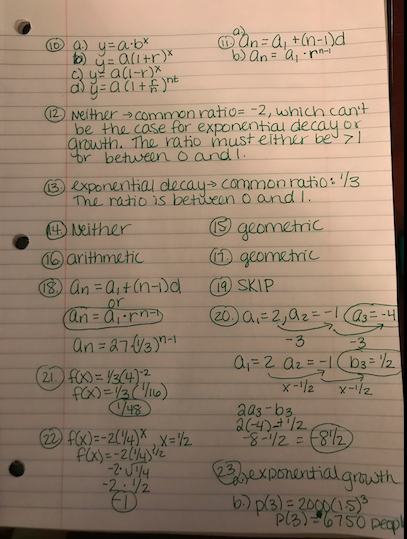 ⑩ a.) y=a·bˣ
b) y=a(1+r)ˣ
c) y=a(1-r)ˣ
d) y=a(1+r/n)ⁿᵗ
⑪ a) an=a₁+(n-1)d
b) an= a₁·rⁿ⁻¹
⑫ Neither → common ratio= -2, which can't
be the case for exponential decay or
growth. The ratio must either be >1
or between 0 and 1.
⑬ exponential decay→ common ratio: 1/3
The ratio is between 0 and 1.
⑭ Neither
⑮ geometric
⑯ arithmetic
⑰ geometric
⑱ an=a₁+(n-1)d
or
an=a₁·rⁿ⁻¹
an=27·(1/3)ⁿ⁻¹
⑲ SKIP
⑳ a₁=2, a₂=-1 a₃=-4
-3 -3
a₁=2 a₂=-1 b₃=1/2
x-1/2 x-1/2
2a₃-b₃
2(-4)-1/2
-8-1/2 = -8 1/2
㉑ f(x)=1/3(4)⁻²
f(x)=1/3(1/16)
1/48
㉒ f(x)=-2(1/4)ˣ, x=1/2
f(x)=-2(1/4)^1/2
-2·√1/4
-2·1/2
-1
㉓ a) exponential growth
b.) p(3)=2000(1.5)³
p(3)=6750 people